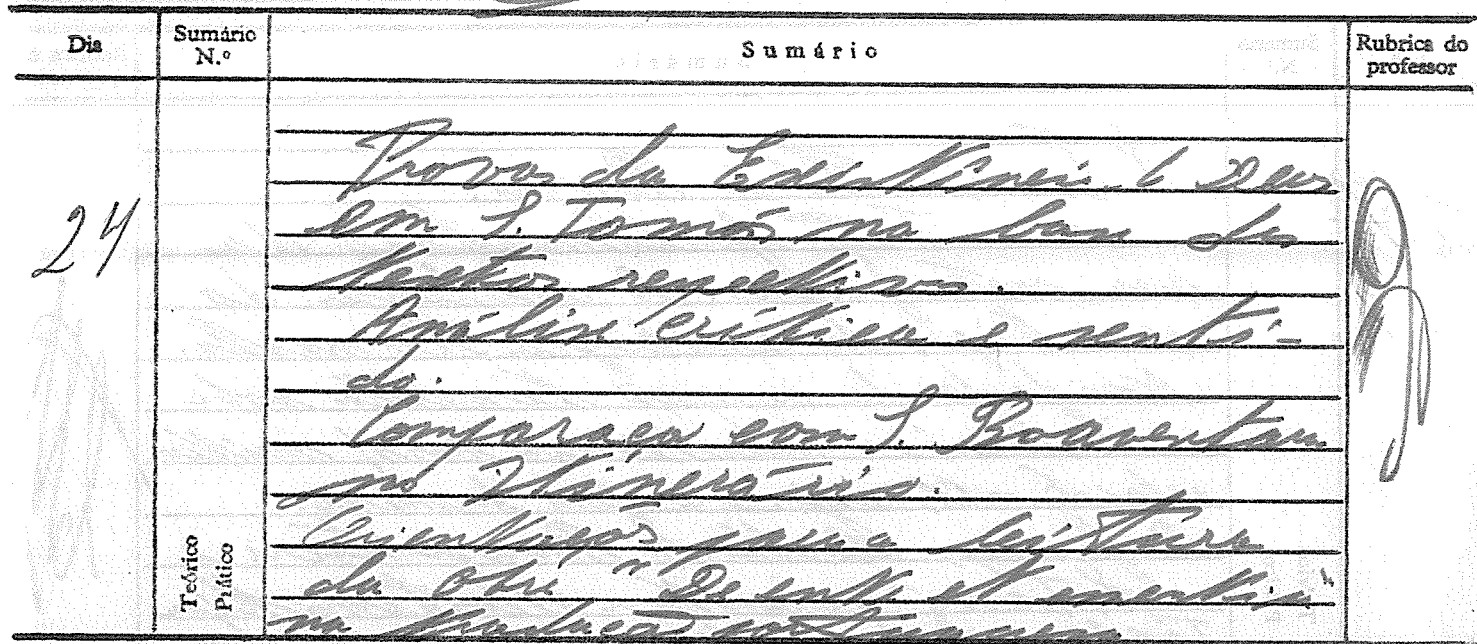 Dia
Sumário N.º
Sumário
Rubrica do professor
24
Provas da Existência de Deus
em S. Tomás na base dos
textos respectivos.
Análise crítica e senti-
do.
Comparação com S. Boaventura
no Itinerário.
Orientações para a leitura
da obra "De ente et essentia"
na tradução
Teórico
Prático